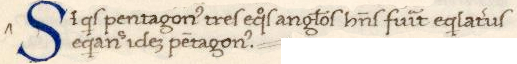 Si qs pentagonꝰ tres eq̄ls angl̄os hn̄s fuīt eq̄laterus
eq̄anꝰ idez pētagonꝰ.